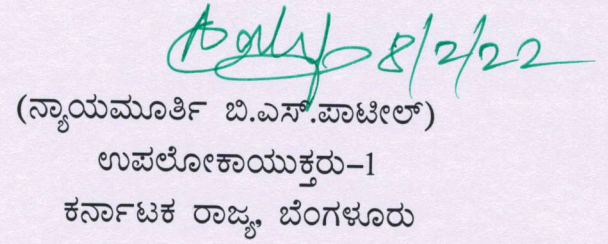 8/2/22
(ನ್ಯಾಯಮೂರ್ತಿ ಬಿ.ಎಸ್.ಪಾಟೀಲ್)
ಉಪಲೋಕಾಯುಕ್ತರು–1
ಕರ್ನಾಟಕ ರಾಜ್ಯ, ಬೆಂಗಳೂರು